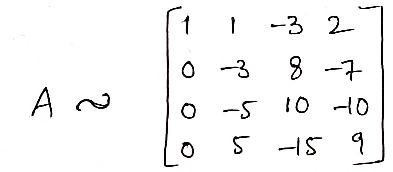 1 1 -3 2
0 -3 8 -7
A ~ 0 -5 10 -10
0 5 -15 9